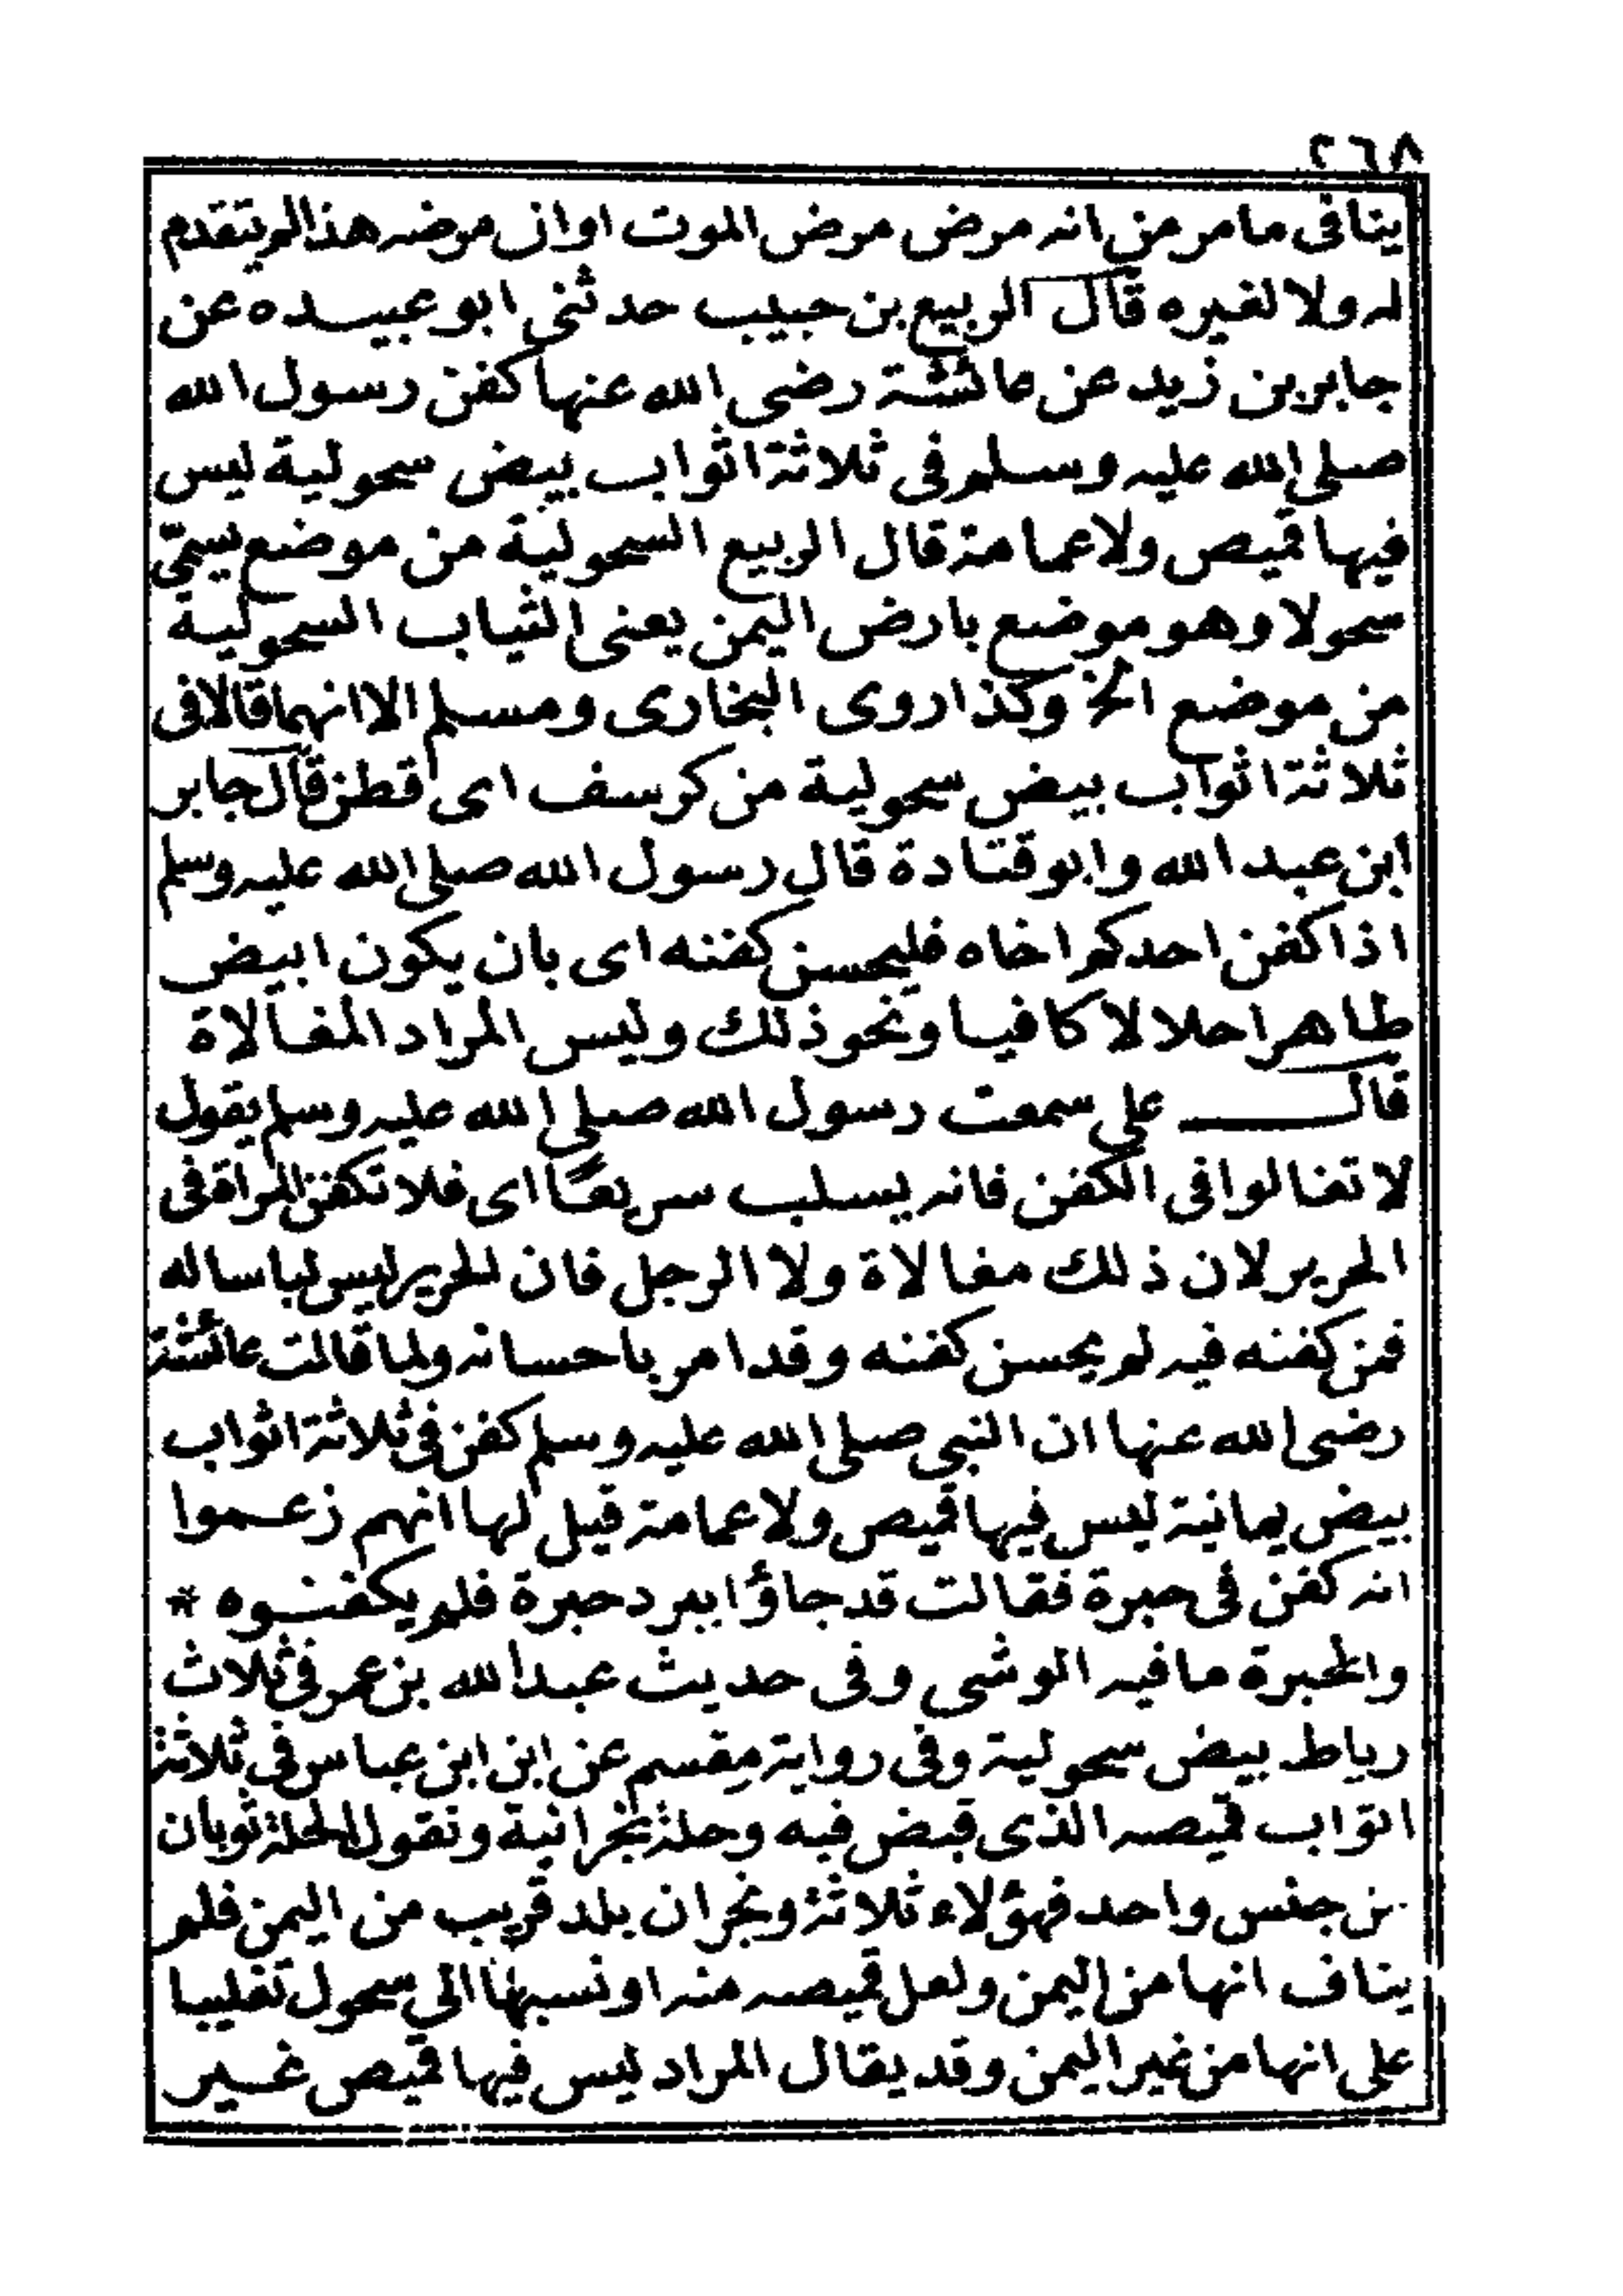 ٢٦٨
ينافى ما مر من انه مرض مرض الموت او ان مرضه هذا لم يتقدم
له ولا لغيره قال الربيع بن حبيب حدثنى ابو عبيده عن
جابر بن زيد عن عائشة رضى الله عنها كفن رسول الله
صلى الله عليه وسلم فى ثلاثة اثواب بيض سحولية ليس
فيها قميص ولا عمامة قال الربيع السحولية من موضع يسمى
سحولا وهو موضع بارض اليمن يعنى الثياب السحولية
من موضع الخ وكذا روى البخارى ومسلم الا انهما قالا فى
ثلاثة اثواب بيض سحولية من كرسف اى قطن قال جابر
ابن عبد الله وابو قتادة قال رسول الله صلى الله عليه وسلم
اذا كفن احدكم اخاه فليحسن كفنه اى بان يكون ابيض
طاهرا حلالا كافيا ونحو ذلك وليس المراد المغالاة
قال على سمعت رسول الله صلى الله عليه وسلم يقول
لا تغالوا فى الكفن فانه يسلب سريعًا اى فلا تكفن المراة فى
الحرير لان ذلك مغالاة ولا الرجل فان الحرير ليس لباسا له
فمن كفنه فيه لم يحسن كفنه وقد امر باحسانه ولما قالت عائشة
رضى الله عنها ان النبى صلى الله عليه وسلم كفن فى ثلاثة اثواب
بيض يمانية ليس فيها قميص ولا عمامة قيل لها انهم زعموا
انه كفن فى حبرة فقالت قد جاؤا ببرد حبرة فلم يكفنوه *
والحبرة ما فيه الوشى وفى حديث عبد الله بن عمر فى ثلاث
رياط بيض سحولية وفى رواية مقسم عن ابن ابن عباس فى ثلاثة
اثواب قميصه الذى قبض فيه وحلة نجرانية وتقول الحلة ثوبان
من جنس واحد فهؤلاء ثلاثة ونجران بلد قريب من اليمن فلم
يناف انها من اليمن ولعل قميصه منه او نسبها الى سحول تغليبا
على انها من غير اليمن وقد يقال المراد ليس فيها قميص غير